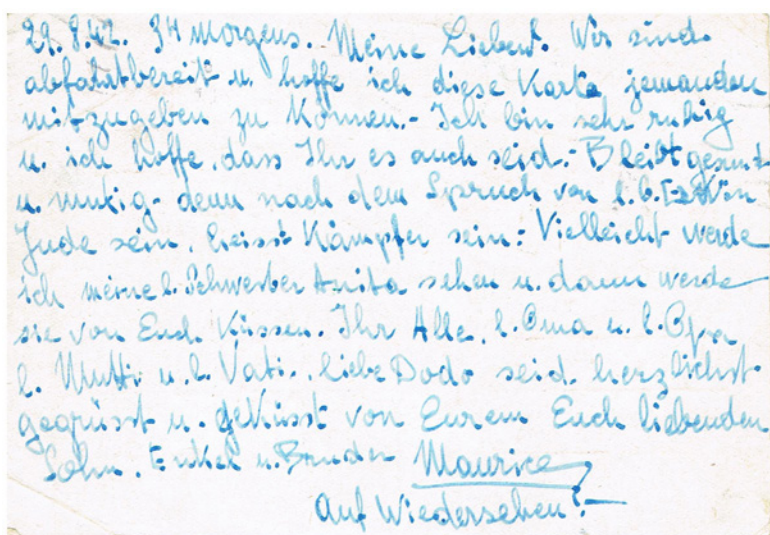 29.8.42. 3H morgens. Meine Lieben! Wir sind
abfahrtbereit u. hoffe ich diese Karte jemanden
mitzugeben zu können.- Ich bin sehr ruhig
u. ich hoffe, dass Ihr es auch seid.- Bleibt gesund
u. mutig- denn nach dem Spruch von l. b.
Jude sein, heisst Kämpfer sein: Vielleicht werde
ich meine l. Schwester Anita sehen u. dann werde
sie von Euch Küssen. Ihr Alle, l. Oma u. l. Opa
l. Mutti u. l. Vati., liebe Dodo seid herzlichst
gegrüsst u. geküsst von Eurem Euch liebenden
Sohn, Enkel u. Bruder Maurice
Auf Wiedersehen!-